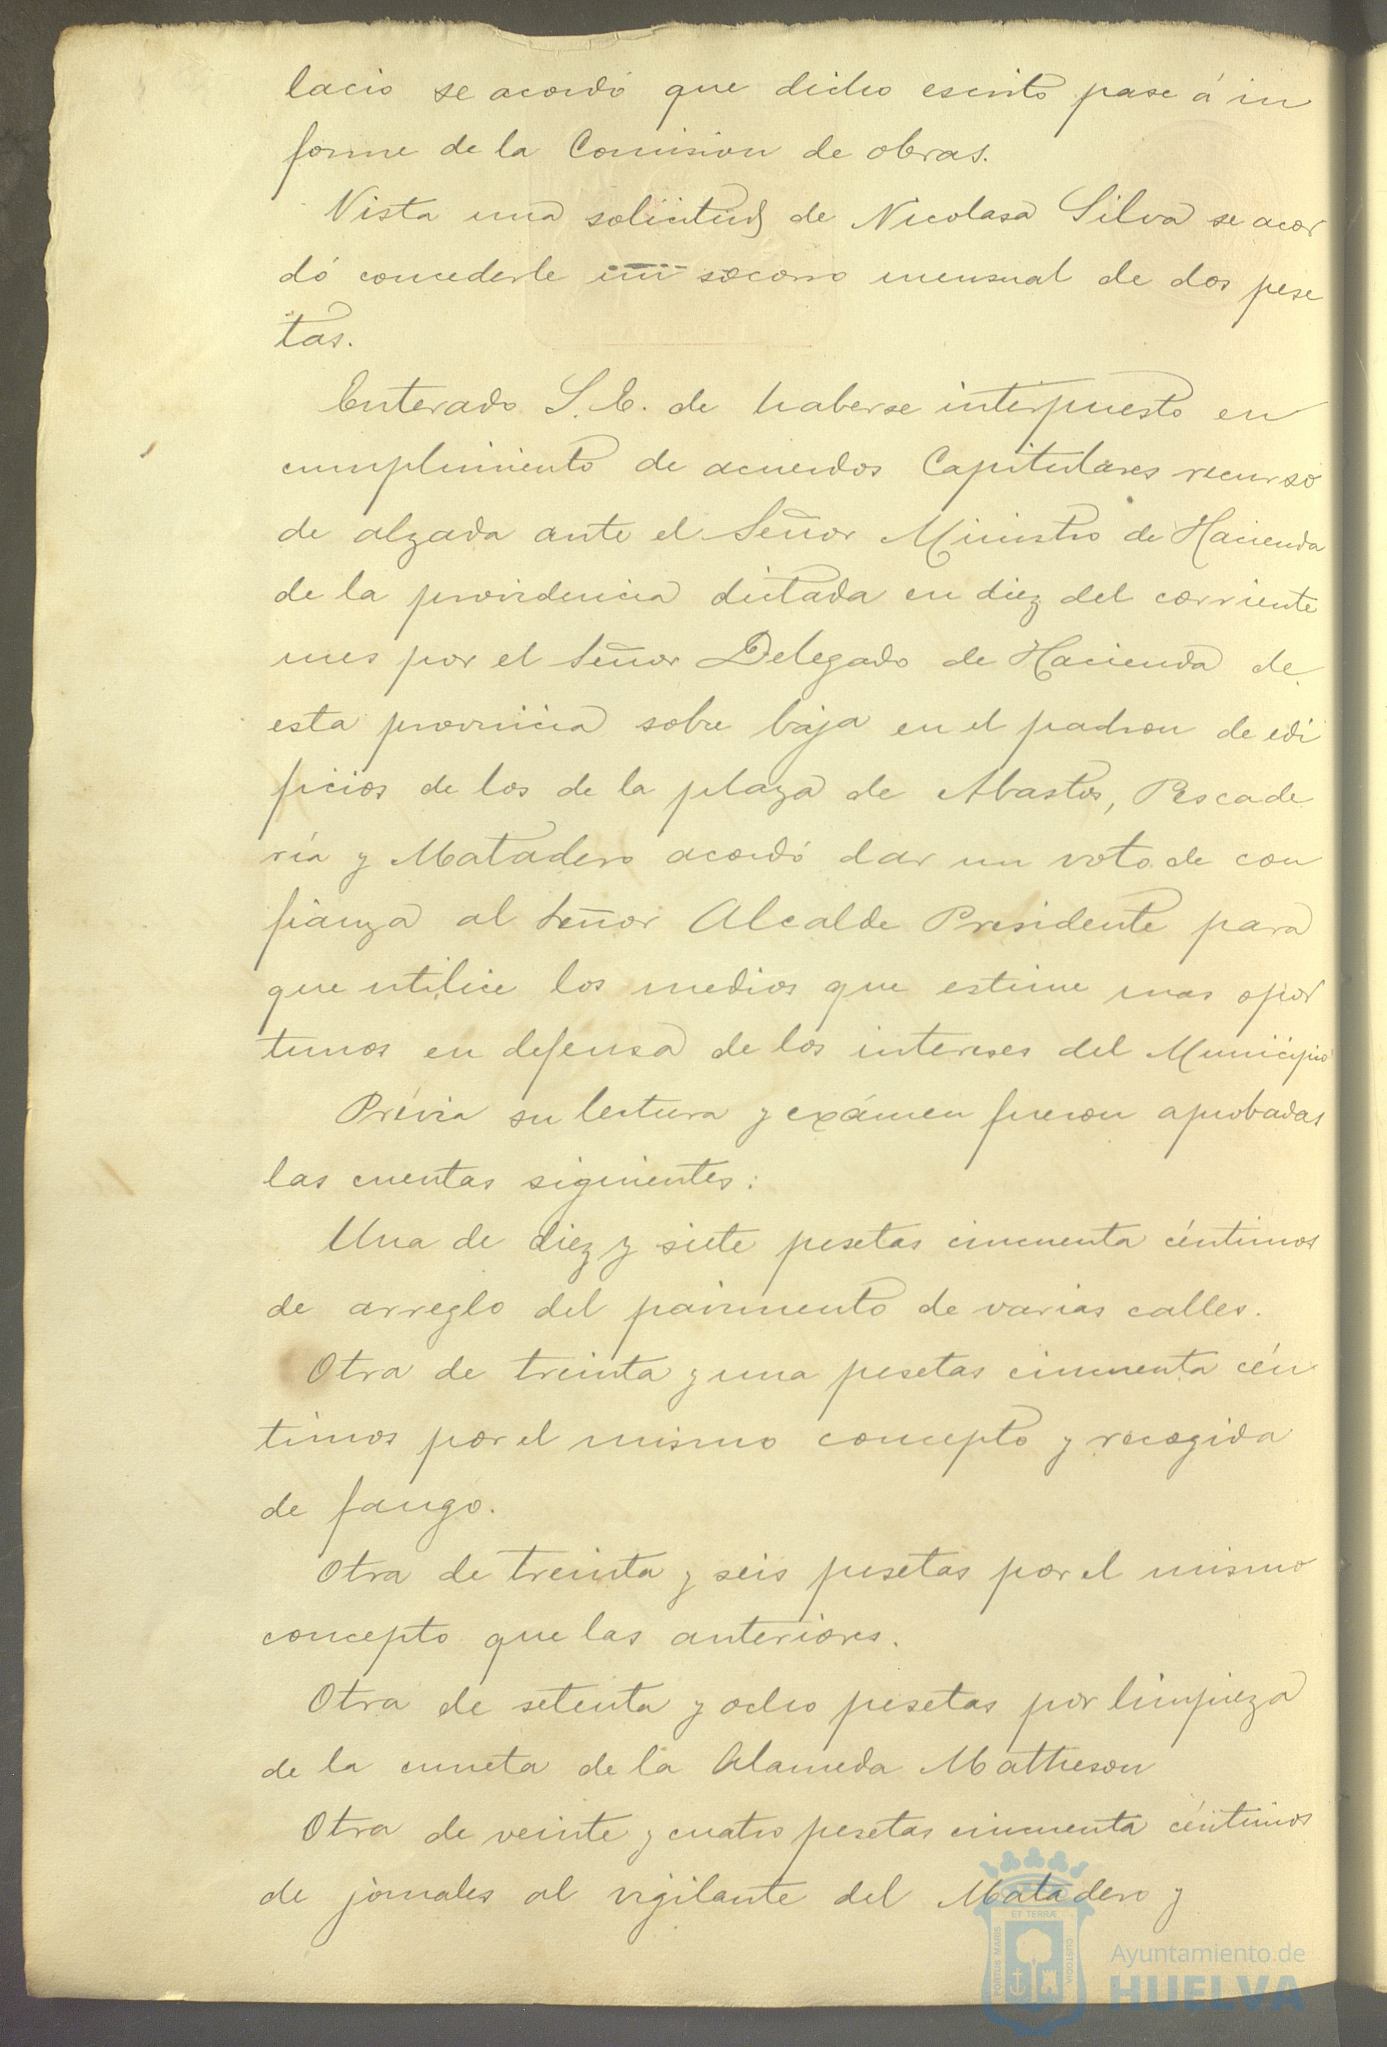 lacio se acordó que dicho escrito pase á in
forme de la Comision de obras.
Vista una solicitud de Nicolasa Silva se acor
dó concederle un socorro mensual de dos pese
tas.
Enterado S. E. de haberse interpuesto en
cumplimiento de acuerdos Capitulares recurso
de alzada ante el Señor Ministro de Hacienda
de la providencia dictada en diez del corriente
mes por el Señor Delegado de Hacienda de
esta provincia sobre baja en el padron de edi
ficios de los de la plaza de Abastos, Pescade
ría y Matadero acordó dar un voto de con
fianza al Señor Alcalde Presidente para
que utilice los medios que estime mas opor
tunos en defensa de los intereses del Municipio
Prévia su lectura y exámen fueron aprobadas
las cuentas siguientes:
Una de diez y siete pesetas cincuenta céntimos
de arreglo del pavimento de varias calles.
Otra de treinta y una pesetas cincuenta cén
timos por el mismo concepto y recogida
de fango.
Otra de treinta y seis pesetas por el mismo
concepto que las anteriores.
Otra de setenta y ocho pesetas por limpieza
de la cuneta de la Alameda Matheson
Otra de veinte y cuatro pesetas cincuenta céntimos
de jornales al vigilante del Matadero y
PORTUS MARIS ET TERRÆ CUSTODIA
Ayuntamiento de
HUELVA